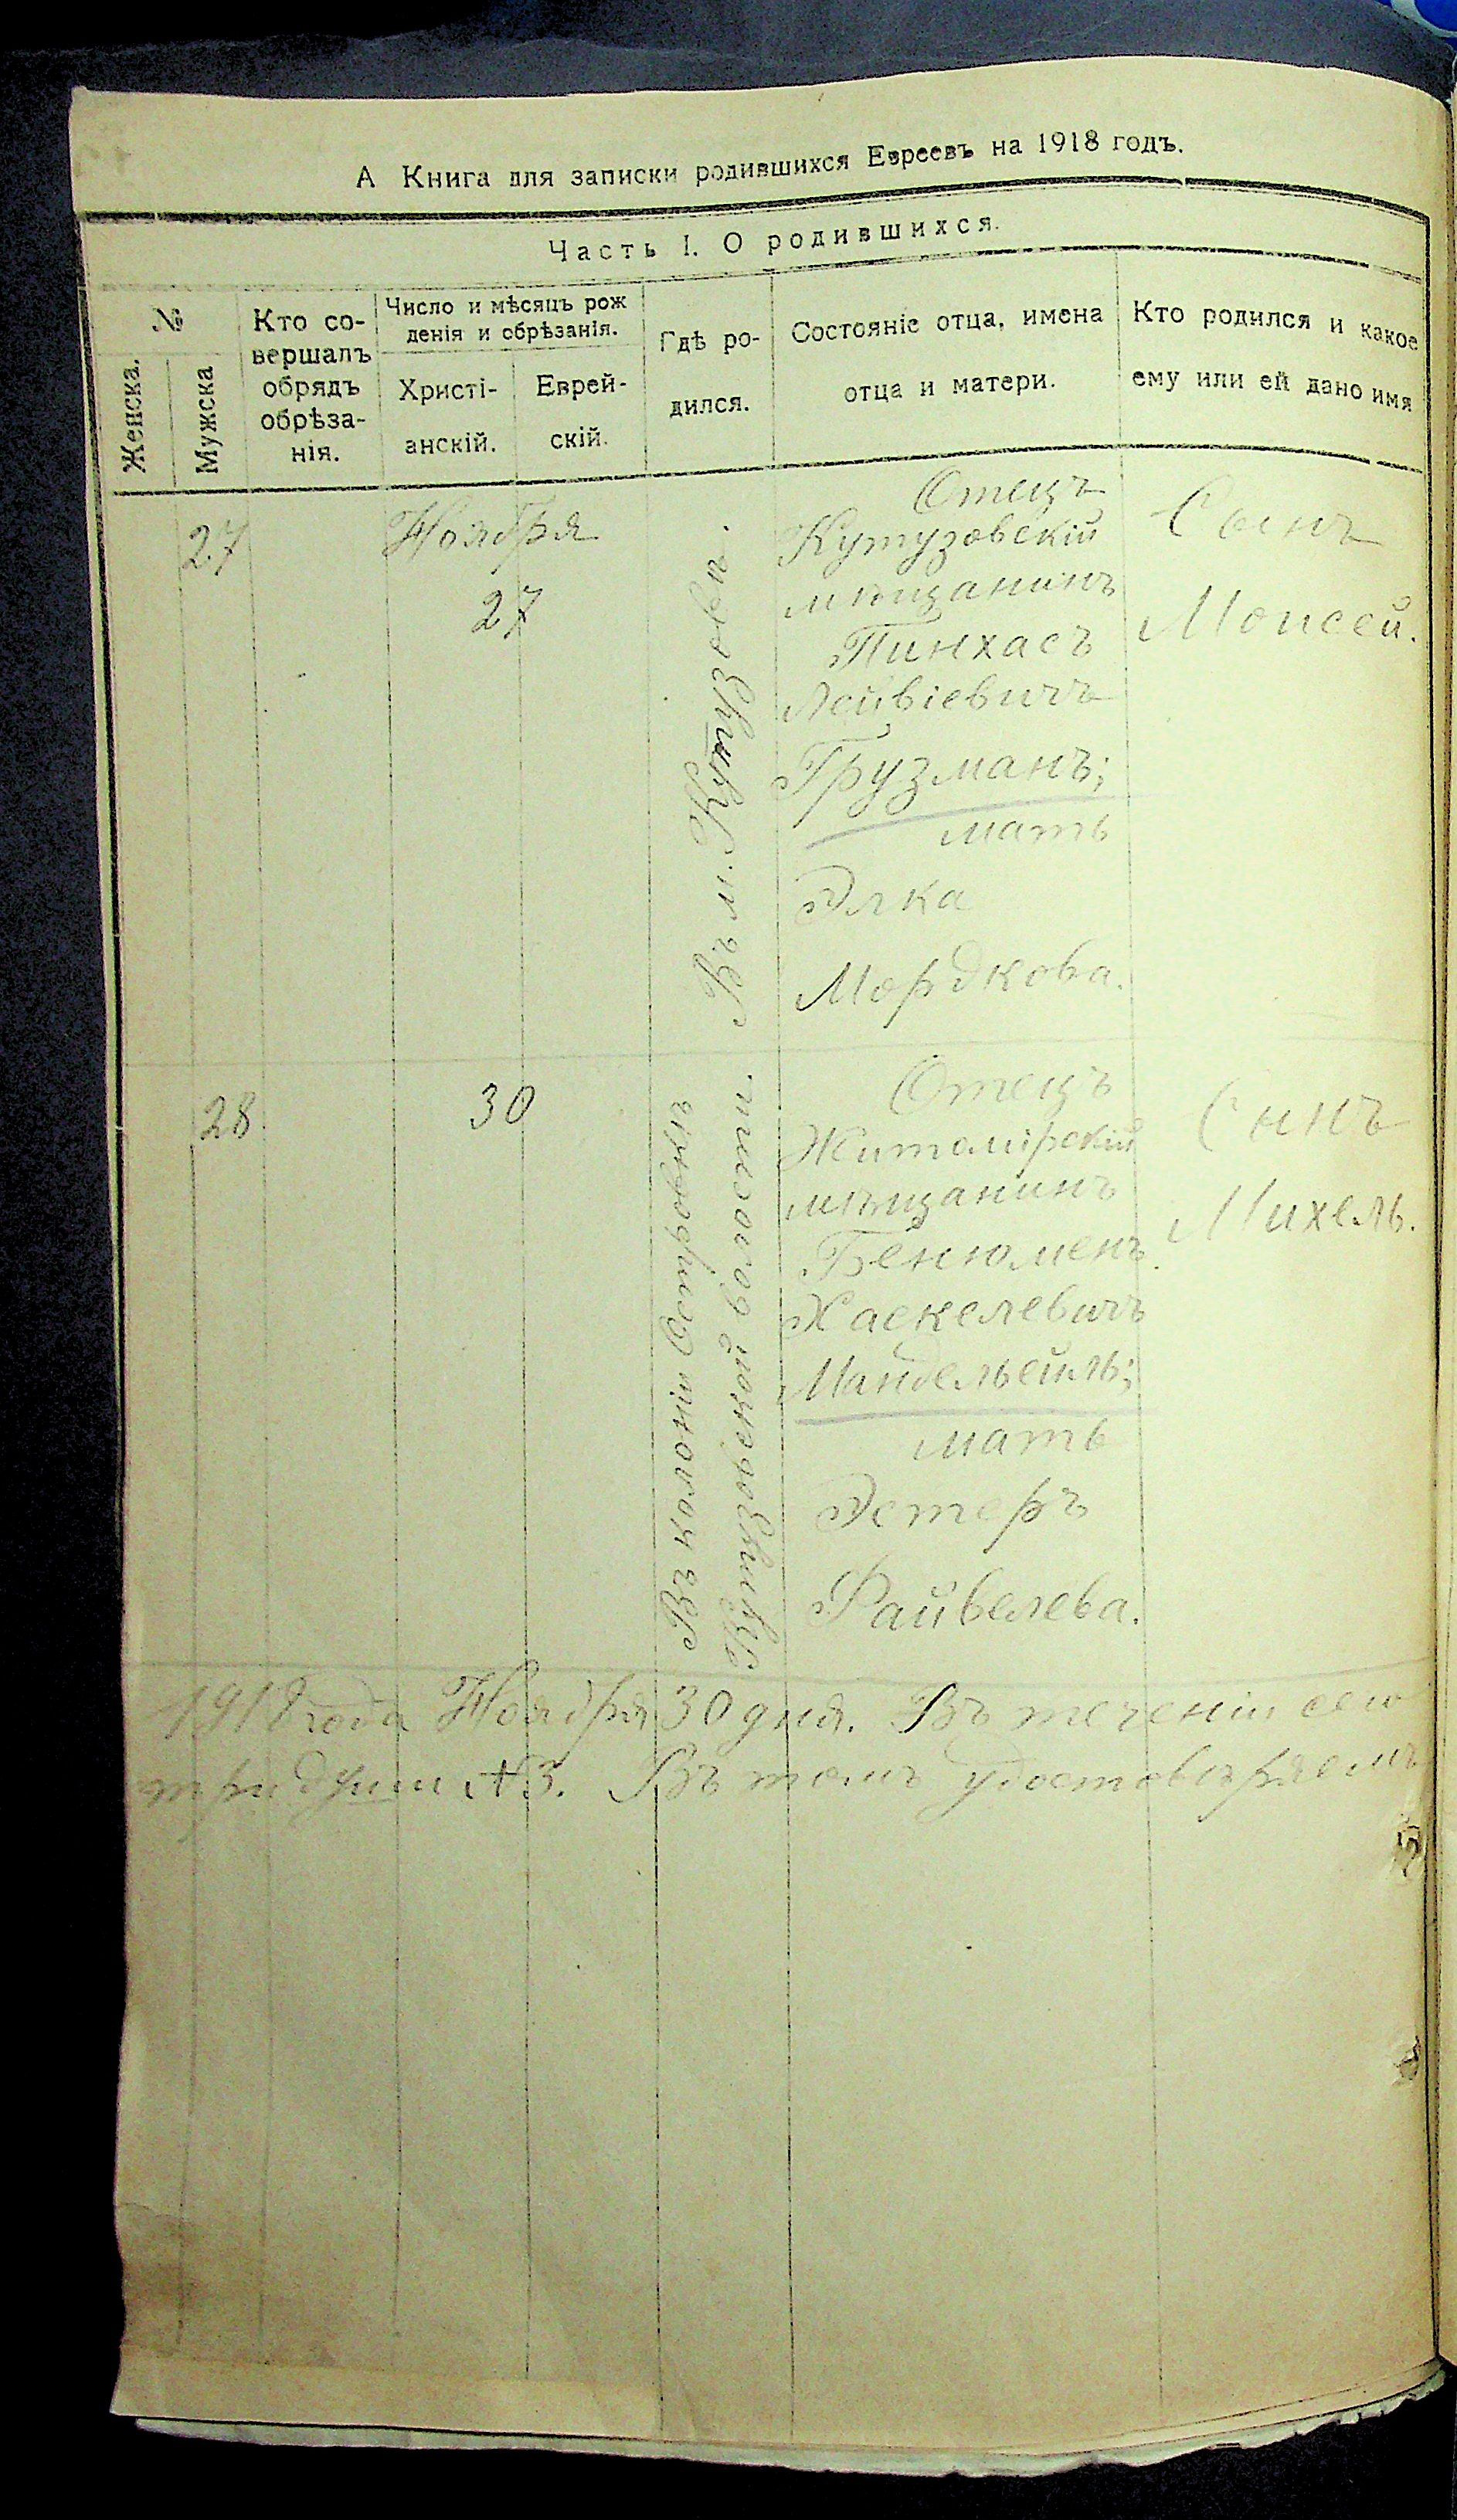 А Книга для записки родившихся Евреевъ на 1918 годъ.
Часть I. О родившихся.
№
Женска.
Мужска
Кто со-
вершалъ
обрядъ
обрѣза-
нія.
Число и мѣсяцъ рож
денія и обрѣзанія.
Христі-
анскій.
Еврей-
скій.
Гдѣ ро-
дился.
Состояніе отца, имена
отца и матери.
Кто родился и какое
ему или ей дано имя
27
Ноября
27
Въ м. Кутузовѣ.
Отецъ
Кутузовскій
мѣщанинъ
Пинхасъ
Лейвіевичъ
Грузманъ;
мать
Элка
Мордкова.
Сынъ
Моисей.
28
30
Въ колоніи
Кутузовской волости.
Отецъ
Житомірскій
мѣщанинъ
Бенюменъ
Хаскелевичъ
Мандельейль;
мать
Эстеръ
Файвелева.
Сынъ
Михель.
1918 года Ноября 30 дня. Въ теченіи сего
три души №3. Въ томъ удостовѣряемъ